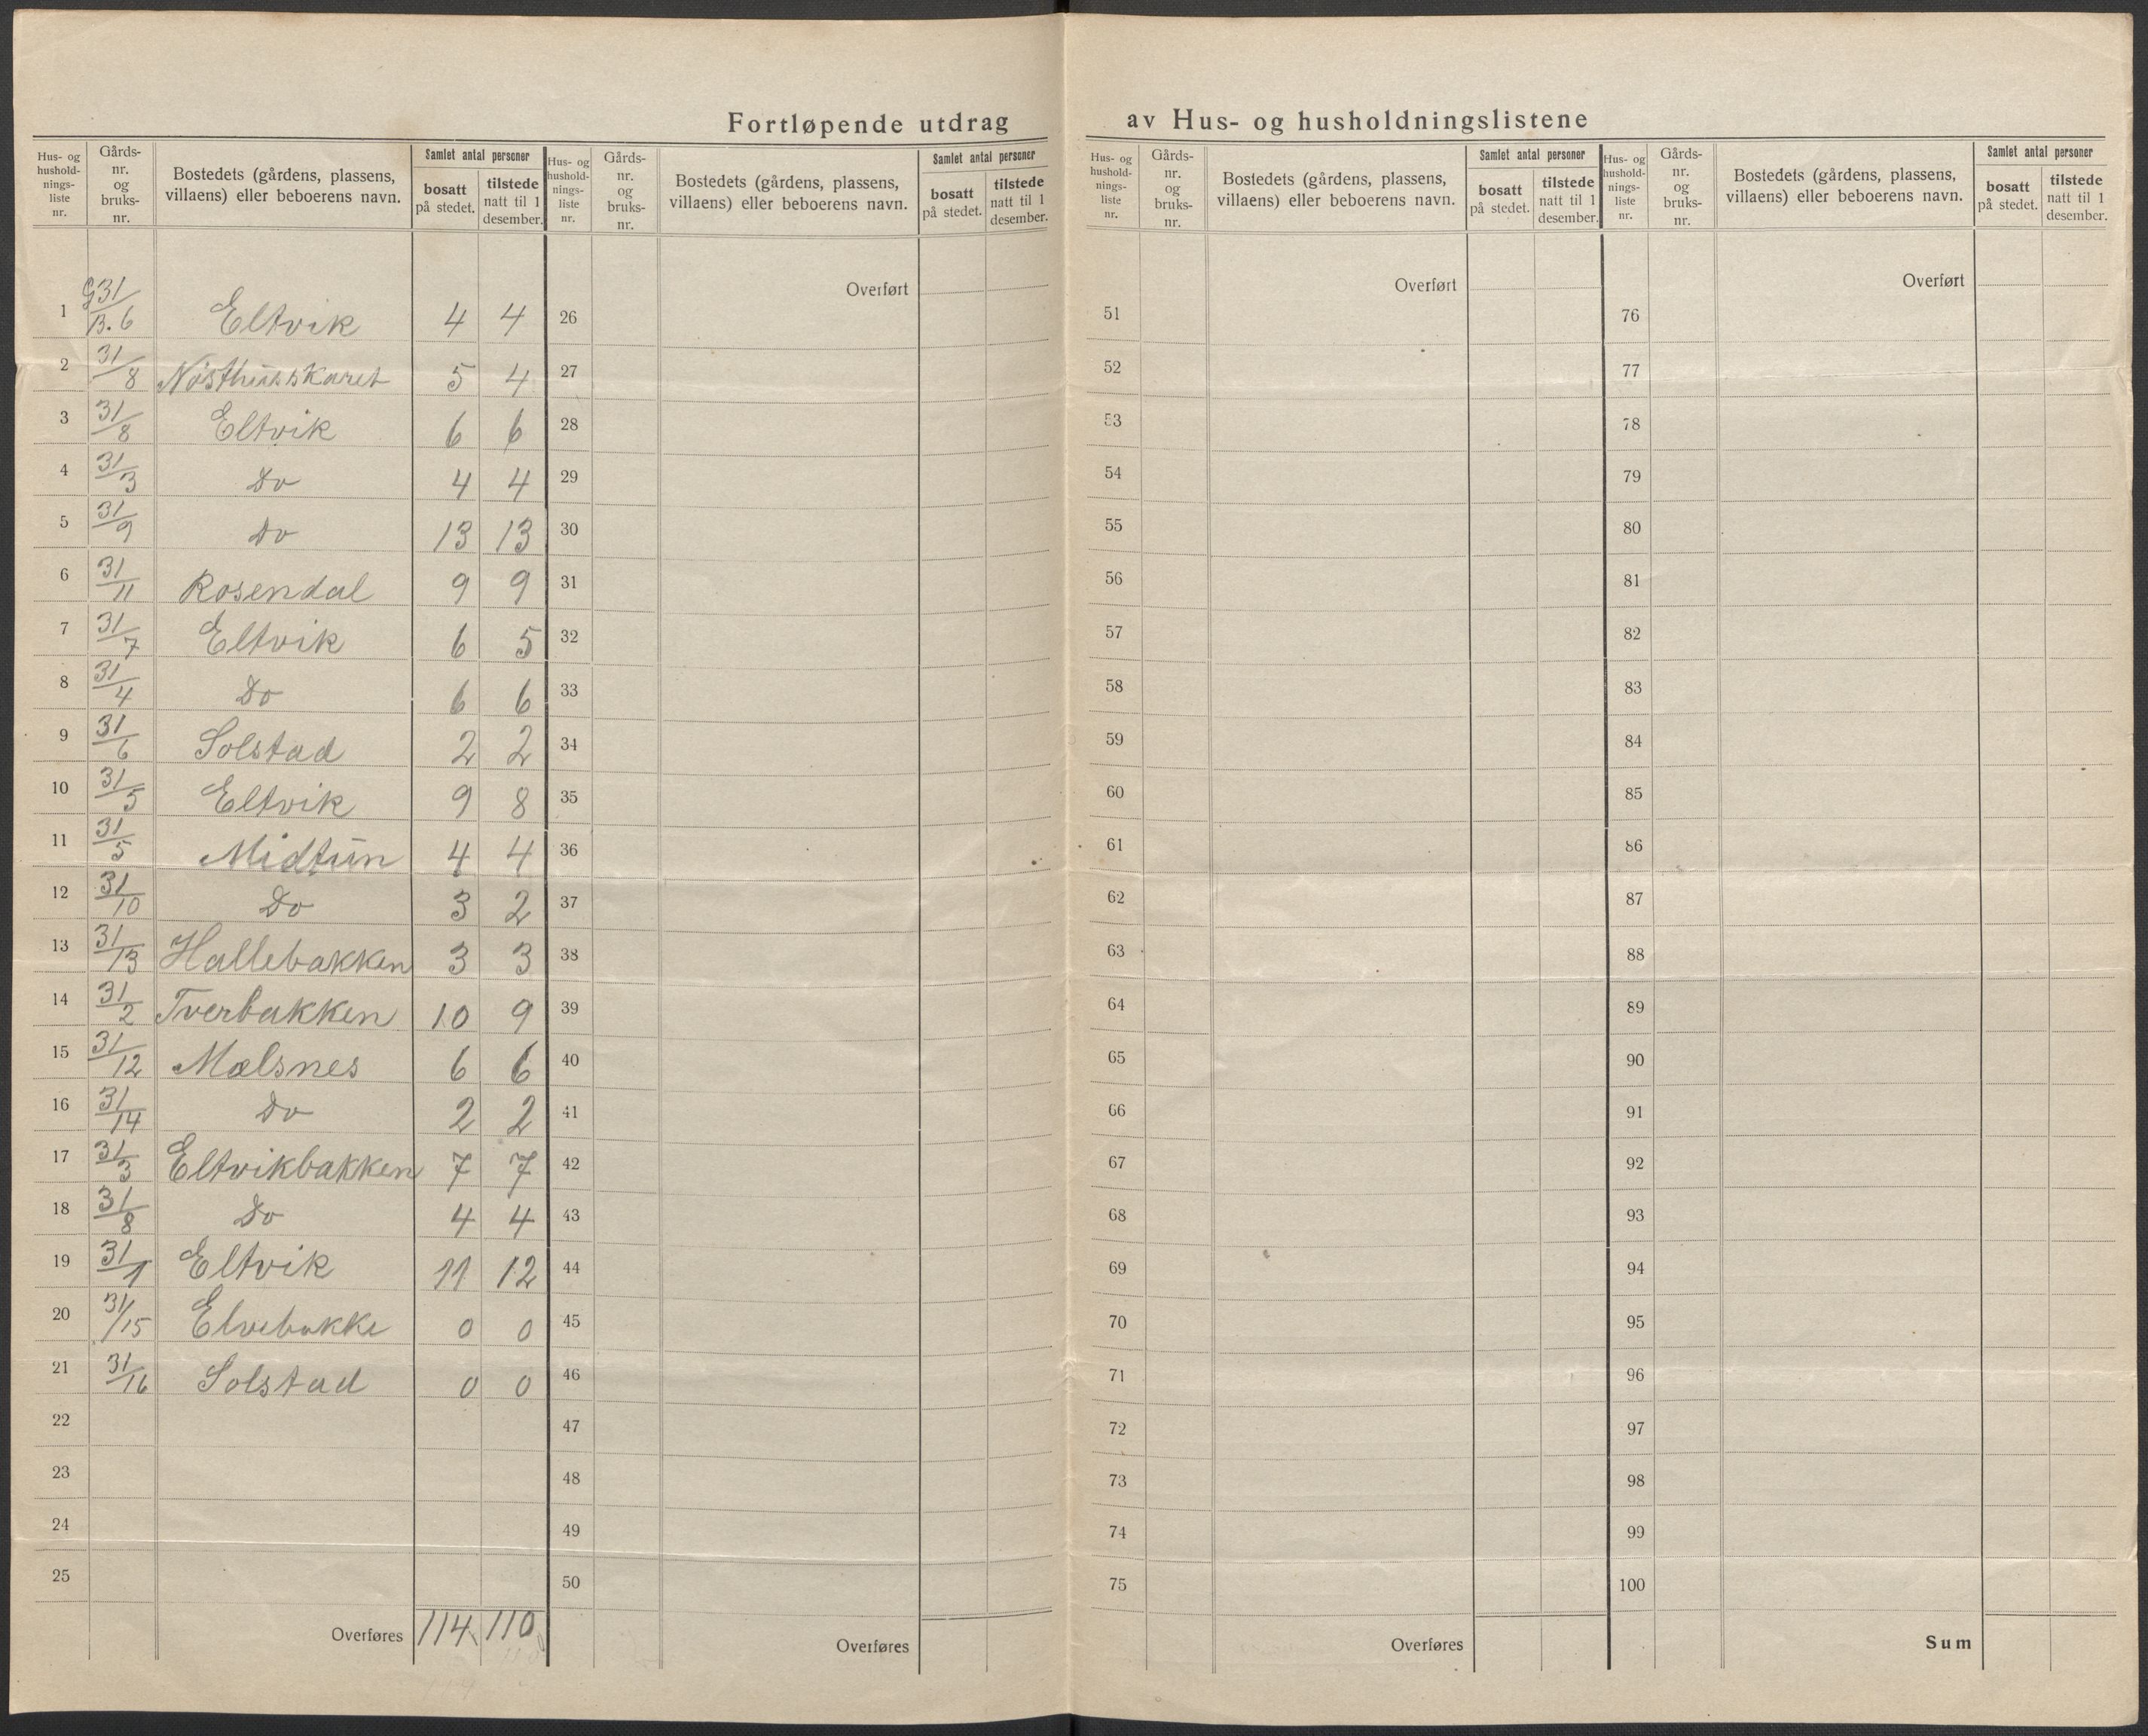 Fortløpende utdrag av Hus- og husholdningslistene
Hus- og hushold-nings-liste nr. | Gårds-nr. og bruks-nr. | Bostedets (gårdens, plassens, villaens) eller beboerens navn. | Samlet antal personer | bosatt på stedet. | tilstede natt til 1 desember.
Overført
1 | G31/B.6 | Eltvik | 4 | 4
2 | 31/8 | Nøsthusskaret | 5 | 4
3 | 31/8 | Eltvik | 6 | 6
4 | 31/3 | Do | 4 | 4
5 | 31/9 | Do | 13 | 13
6 | 31/11 | Rosendal | 9 | 9
7 | 31/7 | Eltvik | 6 | 5
8 | 31/4 | Do | 6 | 6
9 | 31/6 | Solstad | 2 | 2
10 | 31/5 | Eltvik | 9 | 8
11 | 31/5 | Midtun | 4 | 4
12 | 31/10 | Do | 3 | 2
13 | 31/13 | Hallebakken | 3 | 3
14 | 31/2 | Tverbakken | 10 | 9
15 | 31/12 | Mælsnes | 6 | 6
16 | 31/14 | Do | 2 | 2
17 | 31/3 | Eltvikbakken | 7 | 7
18 | 31/8 | Do | 4 | 4
19 | 31/1 | Eltvik | 11 | 12
20 | 31/15 | Elvebakke | 0 | 0
21 | 31/16 | Solstad | 0 | 0
22
23
24
25
Overføres | 114 | 110
Hus- og hushold-nings-liste nr. | Gårds-nr. og bruks-nr. | Bostedets (gårdens, plassens, villaens) eller beboerens navn. | Samlet antal personer | bosatt på stedet. | tilstede natt til 1 desember.
Overført
26
27
28
29
30
31
32
33
34
35
36
37
38
39
40
41
42
43
44
45
46
47
48
49
50
Overføres
Hus- og hushold-nings-liste nr. | Gårds-nr. og bruks-nr. | Bostedets (gårdens, plassens, villaens) eller beboerens navn. | Samlet antal personer | bosatt på stedet. | tilstede natt til 1 desember.
Overført
51
52
53
54
55
56
57
58
59
60
61
62
63
64
65
66
67
68
69
70
71
72
73
74
75
Overføres
Hus- og hushold-nings-liste nr. | Gårds-nr. og bruks-nr. | Bostedets (gårdens, plassens, villaens) eller beboerens navn. | Samlet antal personer | bosatt på stedet. | tilstede natt til 1 desember.
Overført
76
77
78
79
80
81
82
83
84
85
86
87
88
89
90
91
92
93
94
95
96
97
98
99
100
Sum